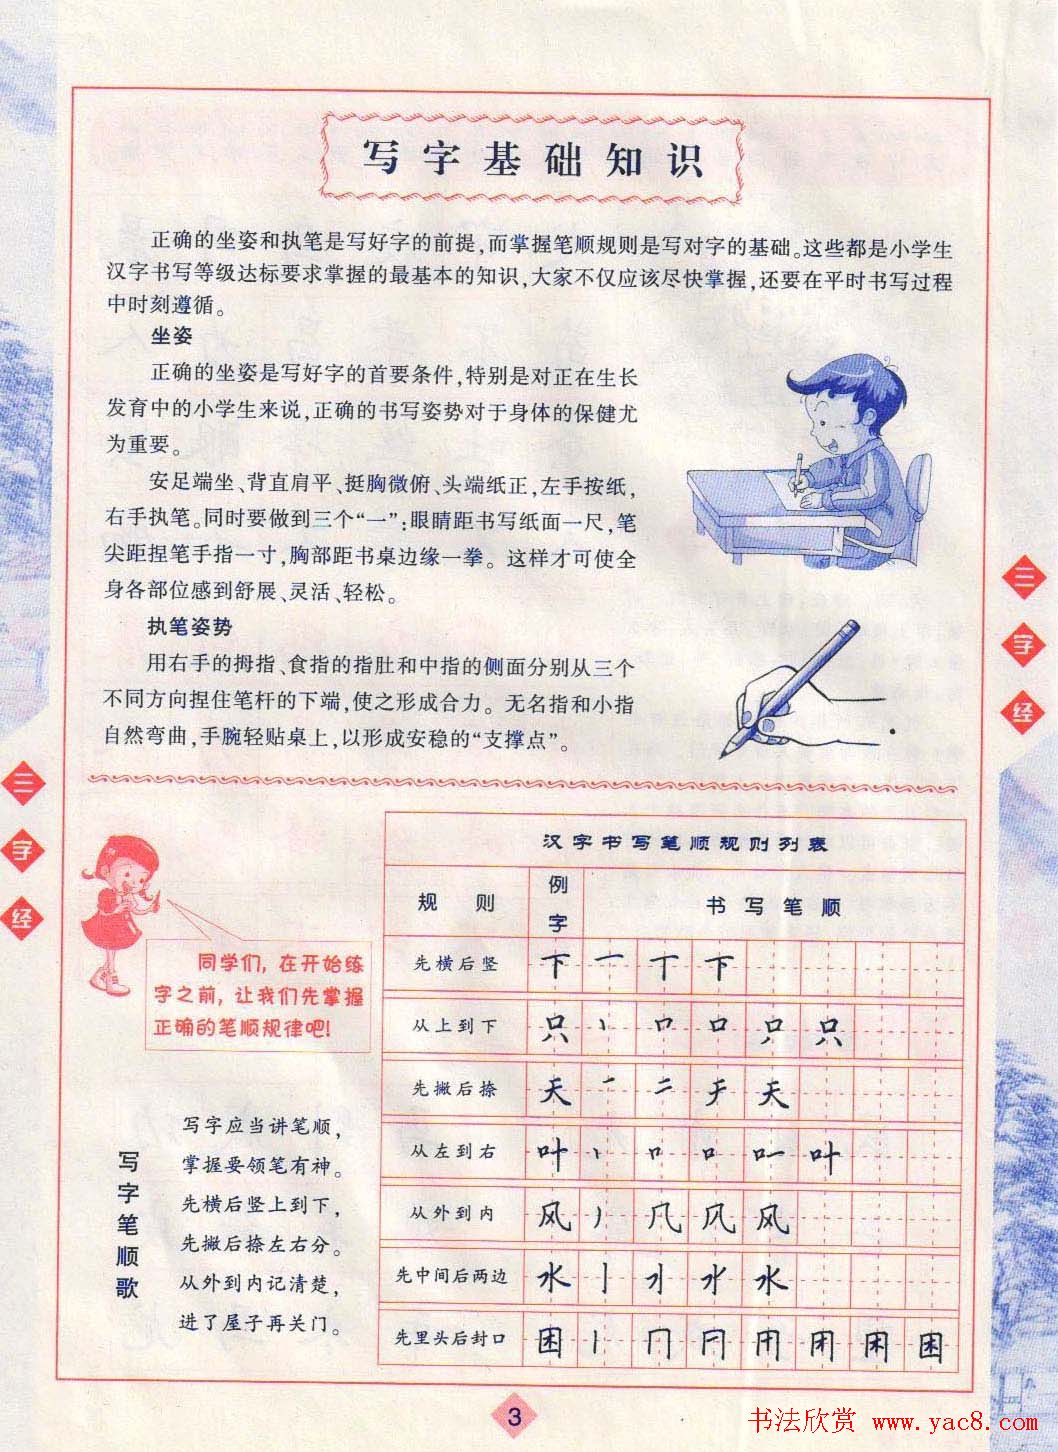 写字基础知识
正确的坐姿和执笔是写好字的前提,而掌握笔顺规则是写对字的基础。这些都是小学生
汉字书写等级达标要求掌握的最基本的知识,大家不仅应该尽快掌握,还要在平时书写过程
中时刻遵循。
坐姿
正确的坐姿是写好字的首要条件,特别是对正在生长
发育中的小学生来说,正确的书写姿势对于身体的保健尤
为重要。
安足端坐、背直肩平、挺胸微俯、头端纸正,左手按纸,
右手执笔。同时要做到三个“一”:眼睛距书写纸面一尺,笔
尖距捏笔手指一寸,胸部距书桌边缘一拳。这样才可使全
身各部位感到舒展、灵活、轻松。
执笔姿势
用右手的拇指、食指的指肚和中指的侧面分别从三个
不同方向捏住笔杆的下端,使之形成合力。无名指和小指
自然弯曲,手腕轻贴桌上,以形成安稳的“支撑点”。
三字经
三字经
同学们,在开始练
字之前,让我们先掌握
正确的笔顺规律吧!
写字笔顺歌
写字应当讲笔顺,
掌握要领笔有神。
先横后竖上到下,
先撇后捺左右分。
从外到内记清楚,
进了屋子再关门。
汉字书写笔顺规则列表
规则 例字 书写笔顺
先横后竖 下 一 丅 下
从上到下 只 丶 口 口 只
先撇后捺 天 一 二 天
从左到右 叶 丶 口 口 叶
从外到内 风 丿 几 风 风
先中间后两边 水 亅 水
先里头后封口 困 丨 冂 困
3
书法欣赏 www.yac8.com